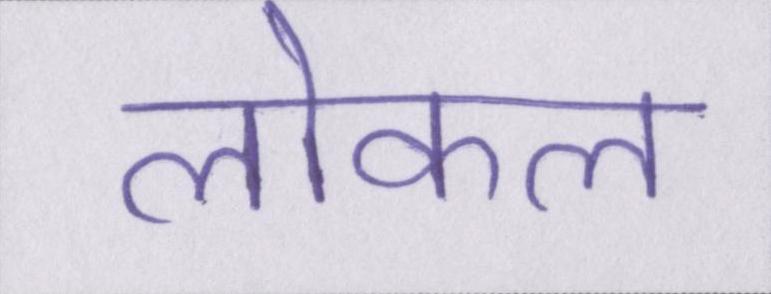 लोकल